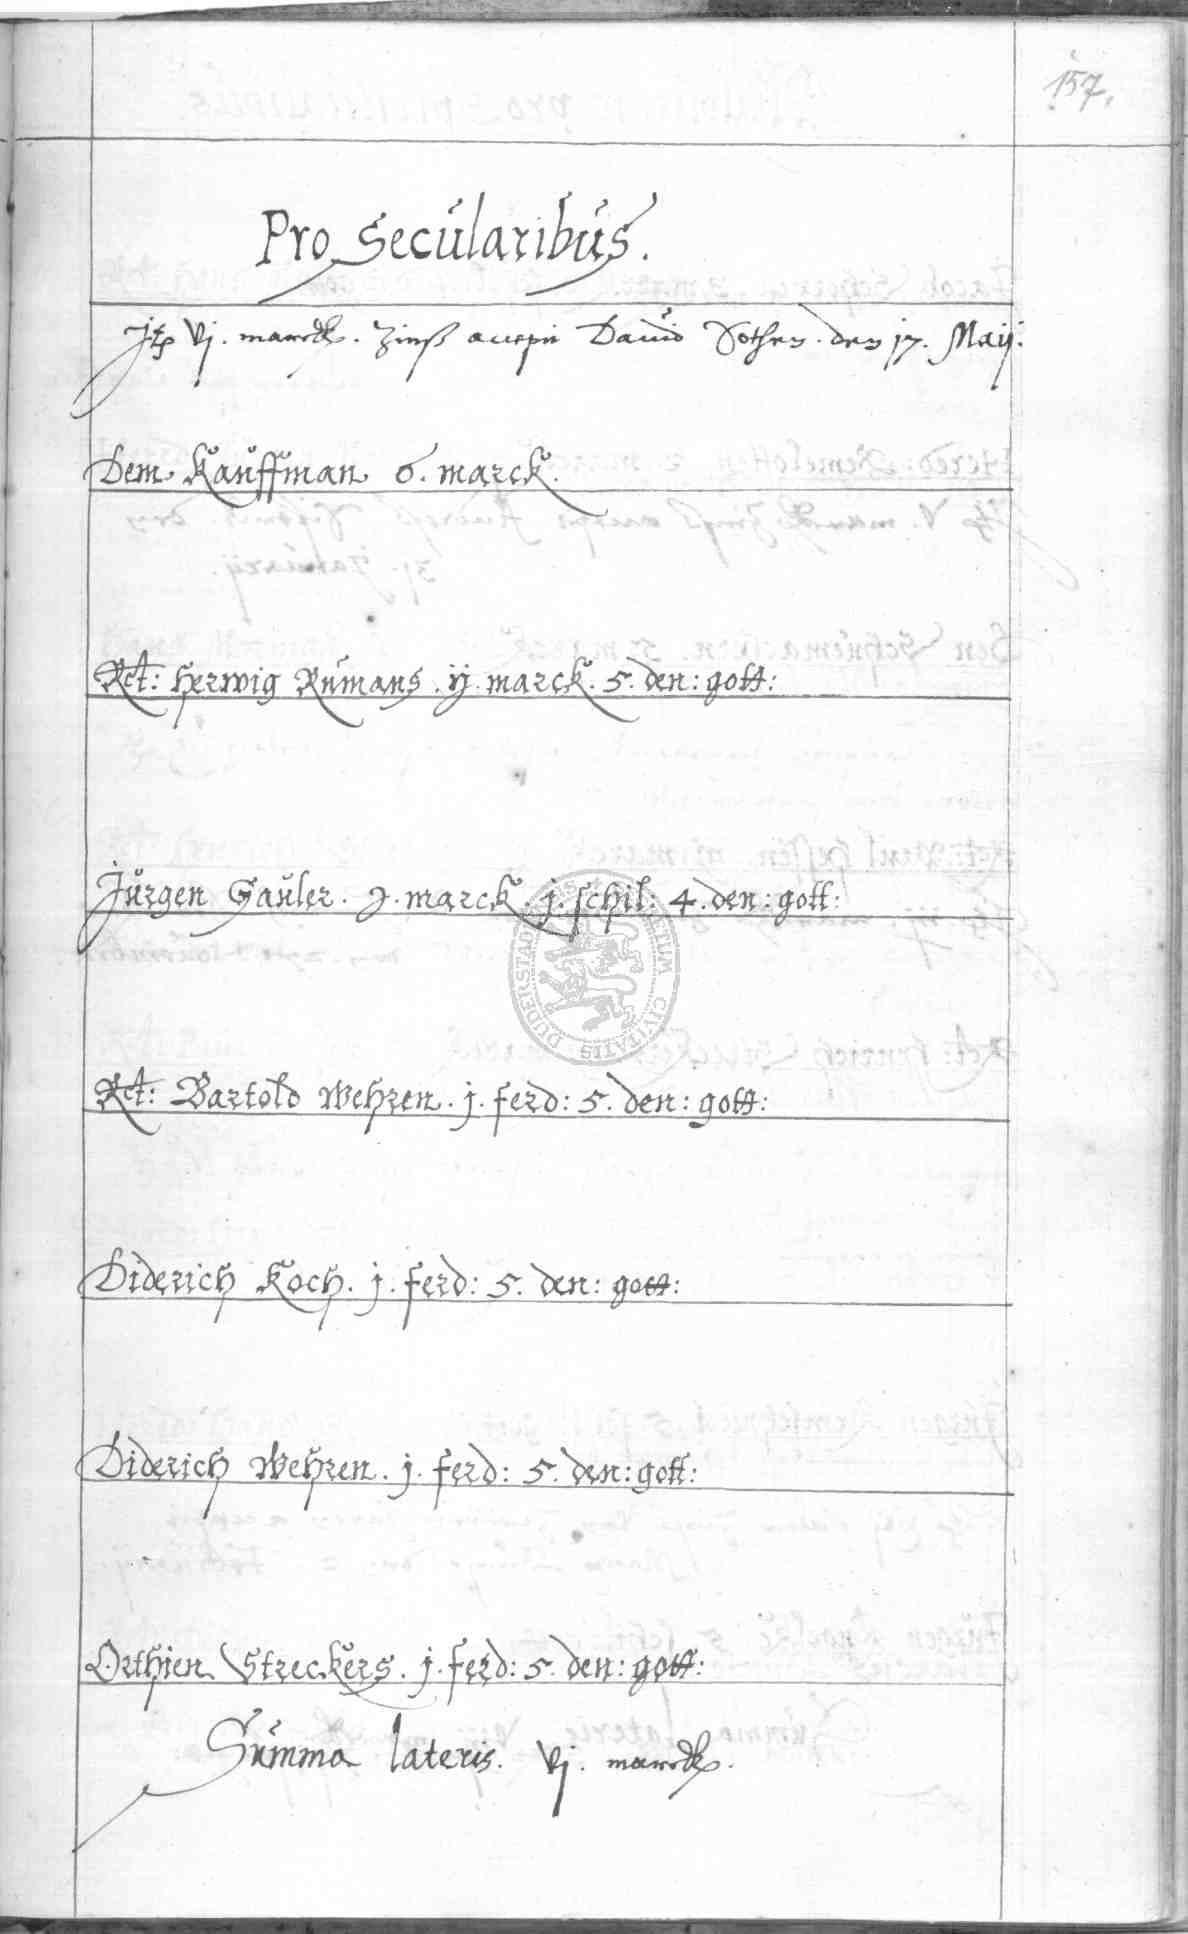 157.
Pro Secularibus.
Itp vj. marck. Zinß accepit David den 17. Maij:
Dem Kauffman 6. marck.
Rct: Herwig Rümans. ij. marck. 5. den: gott:
Jürgen Gauler. 2. marck. j. schil: 4. den: gott:
Rct: Bartold Wehren. j. ferd: 5. den: gott:
Diderich Koch. j. ferd: 5. den: gott:
Diderich Wehren. j. ferd: 5. den: gott:
Orthien Streckers. j. ferd: 5. den: gott:
Summa lateris. vj. marck.